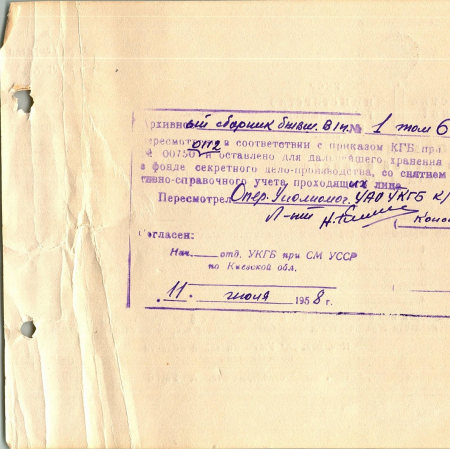 Архивный сборник бывш. В/ч. № 1 том 6
пересмотрен в соответствии с приказом КГБ при
№ 00750 и оставлено для дальнейшего хранения
в фонде секретного дело-производства, со снятием
тивно-справочного учета проходящих лица
Пересмотрел Опер. Уполномоч. УАО УКГБ К/
Л-нт
Согласен:
Нач. отд. УКГБ при СМ УССР
по Киевской обл.
11 июля 1958 г.